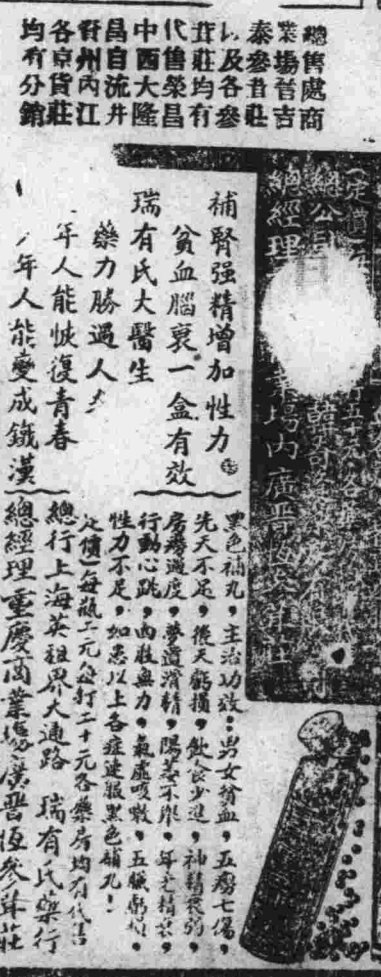 總售處商
業場晉吉
泰參茸莊
以及各參
茸莊均有
代售榮昌
中西大隆
昌自流井
州內江
各京貨莊
均有分銷
(定價)
總公司
總經理 業場內廣晋恆參茸
補腎强精增加性力
貧血腦衰一盒有效
瑞有氏大醫生
藥力勝過人
年人能恢復青春
年人能變成鐵漢
黑色補丸,主治功效:男女貧血,五癆七傷,
先天不足,後天虧損,飲食少進,神精衰弱,
房癆過度,夢遺滑精,陽萎不舉,年老精衰,
行動心跳,四肢無力,氣虛咳嗽,五臟虧損,
性力不足,如患以上各症速服黑色補丸!
定價)每瓶二元每打二十元各藥房均有代售
總行上海英租界大通路 瑞有氏藥行
總經理重慶商業場廣晋恆參茸莊